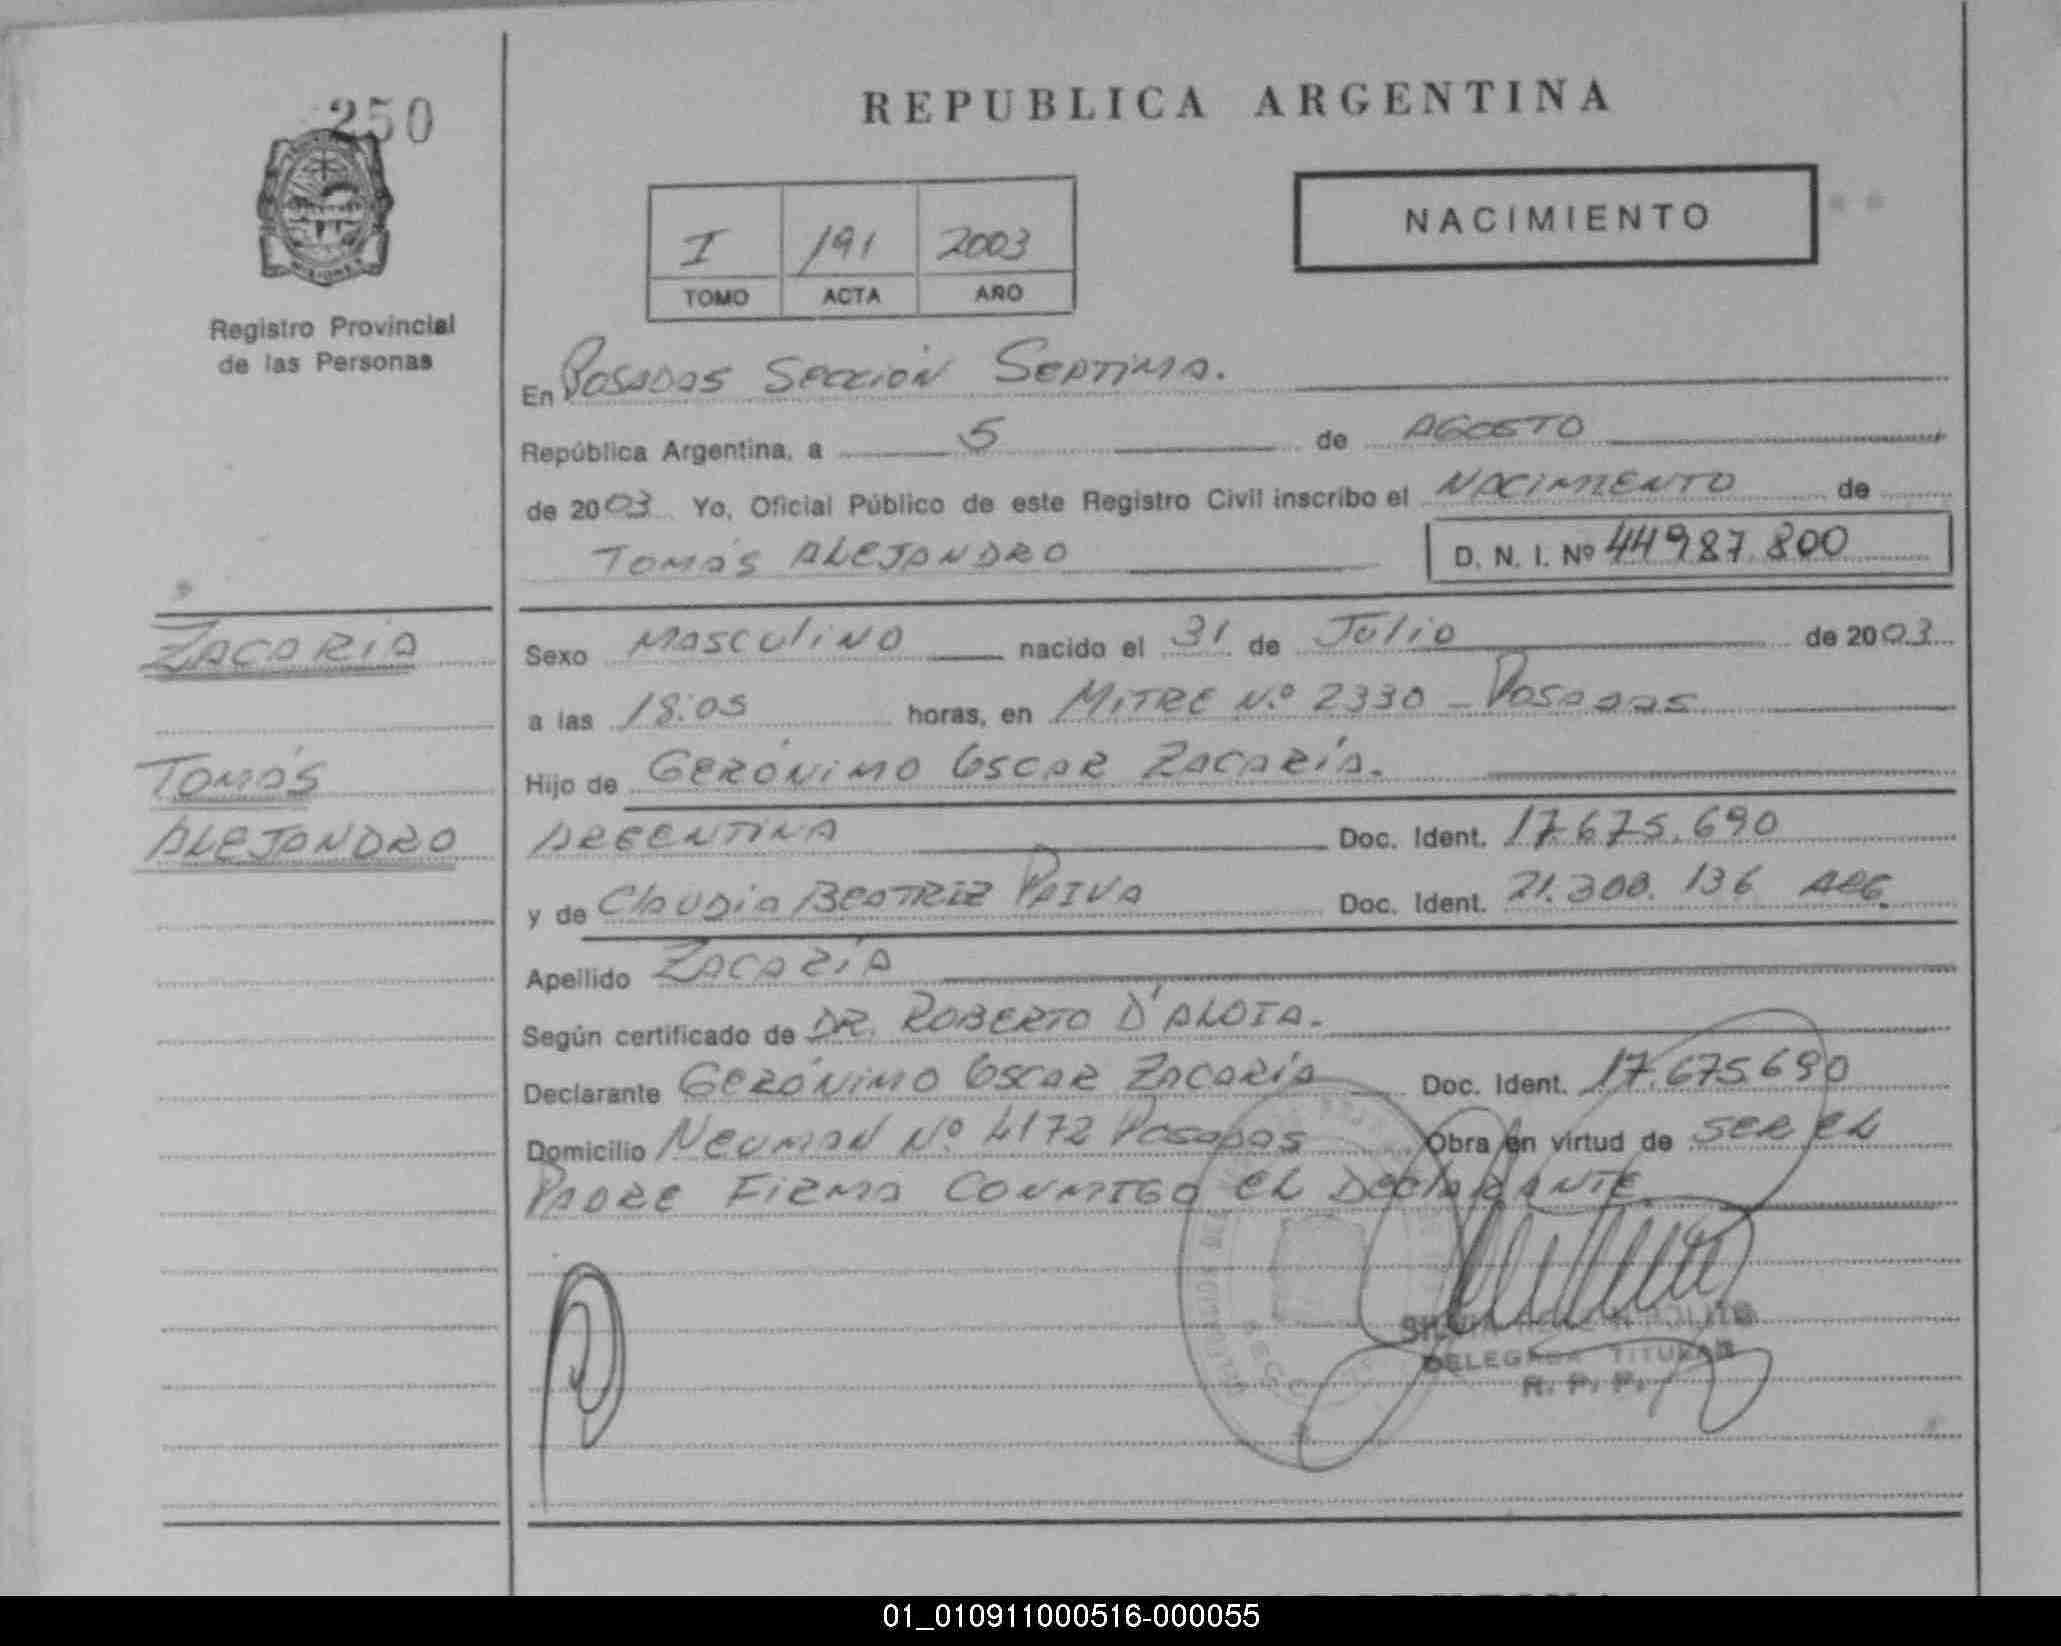 250
REPUBLICA ARGENTINA
NACIMIENTO
I 191 2003
TOMO ACTA AÑO
MISIONES
Registro Provincial
de las Personas
En Posadas Sección Septima.
República Argentina, a 5 de Agosto
de 2003 Yo, Oficial Público de este Registro Civil inscribo el Nacimiento de
Tomás Alejandro D. N. I. Nº 44987.800
Zacaría
Tomás
Alejandro
Sexo Masculino nacido el 31 de Julio de 2003
a las 18:05 horas, en Mitre Nº 2330 - Posadas
Hijo de Gerónimo Oscar Zacaría.
Argentina Doc. Ident. 17.675.690
y de Claudia Beatriz Paiva Doc. Ident. 21.300.136 Arg.
Apellido Zacaría
Según certificado de Dr. Roberto D'Alota.
Declarante Gerónimo Oscar Zacaría Doc. Ident. 17.675.690
Domicilio Neuman Nº 4172 Posadas Obra en virtud de ser el
Padre Firma conmigo el Declarante.
DELEGADA TITULAR
R. P. P.
01_010911000516-000055